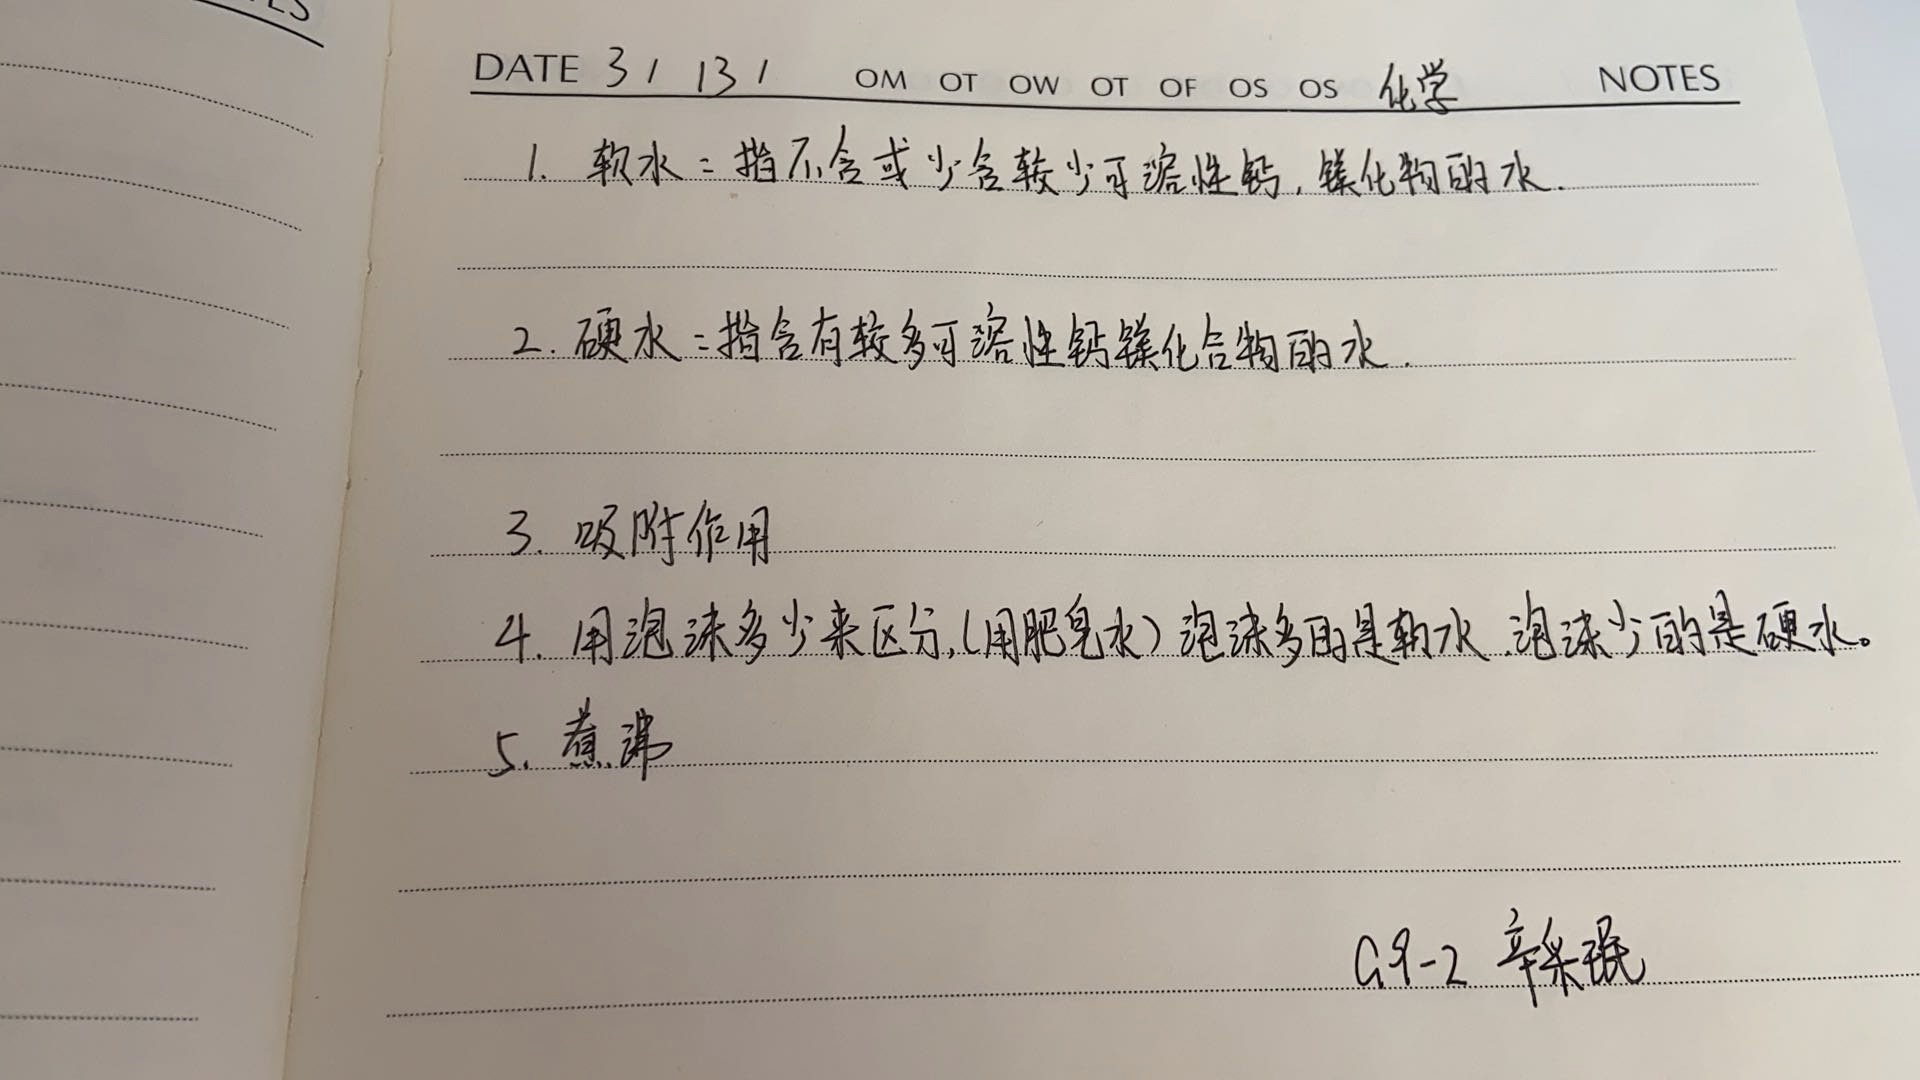 DATE 3 / 13 / OM OT OW OT OF OS OS 化学 NOTES
1. 软水：指不含或少含较少可溶性钙,镁化物的水.
2. 硬水：指含有较多可溶性钙镁化合物的水.
3. 吸附作用
4. 用泡沫多少来区分,(用肥皂水)泡沫多的是软水.泡沫少的是硬水。
5. 煮沸
G9-2 辛